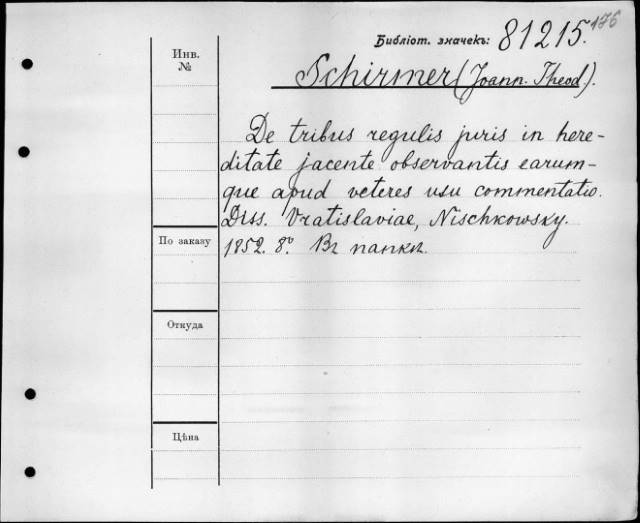 176
Библіот. значекъ: 81215.
Инв.
№
Schirmer (Joann. Theod.).
De tribus regulis juris in here-
ditate jacente observantis earum-
que apud veteres usu commentatio.
Diss. Vratislaviae, Nischkowsky.
По заказу
1852. 8º. Въ папкѣ.
Откуда
Цѣна